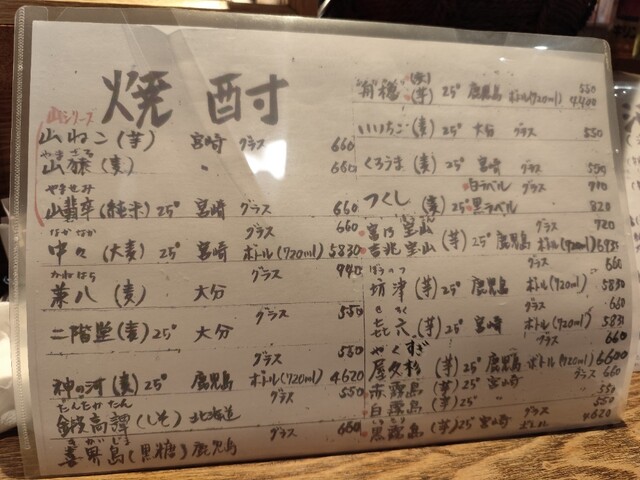 焼酎
山シリーズ
山ねこ(芋) 宮崎 グラス 660
やまざる
山猿(麦) 〃 660
やませみ
山翡翠(純米)25° 宮崎 グラス 660
なかなか グラス 660
中々(大麦)25° 宮崎 ボトル(720ml) 5830
かねはち グラス 940
兼八(麦) 大分
グラス 550
二階堂(麦)25° 大分
グラス 550
神の河(麦)25° 鹿児島 ボトル(720ml) 4620
たんたかたん グラス 550
鍛高譚(しそ)北海道
グラス 660
喜界島(黒糖)鹿児島
(芋)25° 鹿児島 ボトル(720ml) 550
4400
いいちこ(麦)25° 大分 グラス 550
くろうま(麦)25° 宮崎 グラス 550
白ラベル グラス
つくし(麦)25° 黒ラベル 820
グラス
吉兆宝山(芋)25° 鹿児島 ボトル(720ml)
ぼうのつ グラス 660
坊津(芋)25° 鹿児島 ボトル(720ml) 5830
きろく グラス 660
㐂六(芋)25° 宮崎 ボトル(720ml)
やくすぎ グラス 660
屋久杉(芋)25° 鹿児島 ボトル(720ml) 6600
赤霧島(芋)25° 宮崎 グラス 660
白霧島(芋)25° 〃 550
グラス 550
黒霧島(芋)25° 宮崎 ボトル 4620